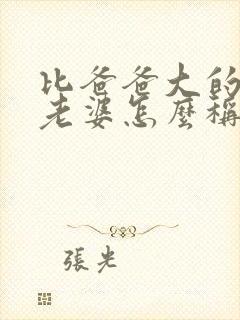 比爸爸大的
老婆怎麼稱
張光